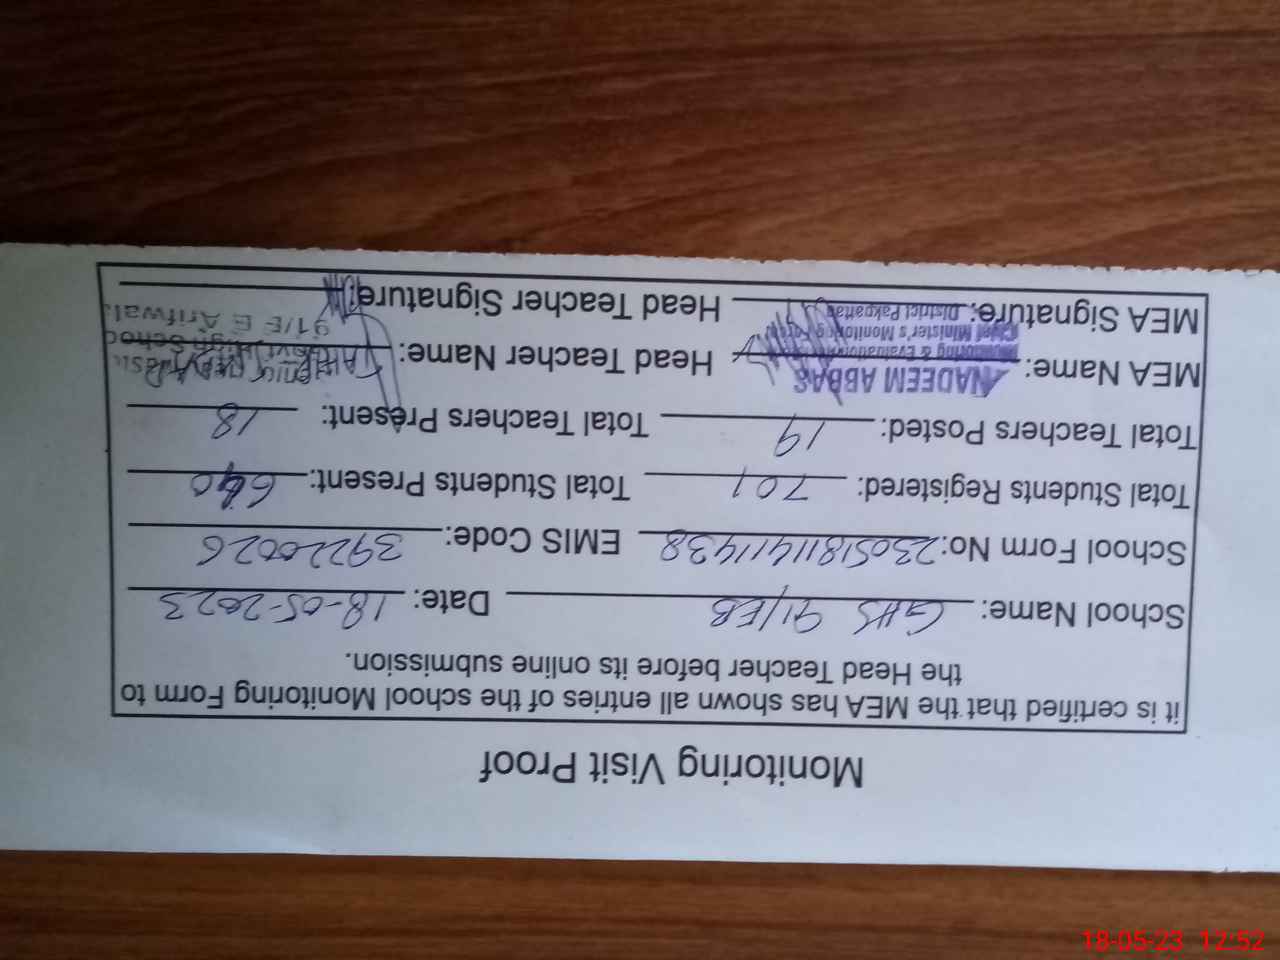 Monitoring Visit Proof
it is certified that the MEA has shown all entries of the school Monitoring Form to
the Head Teacher before its online submission.
School Name: GHS 91/EB Date: 18-05-2023
School Form No: 230518114111438 EMIS Code: 39220026
Total Students Registered: 701 Total Students Present: 640
Total Teachers Posted: 19 Total Teachers Present: 18
MEA Name: NADEEM ABBAS Head Teacher Name:
Monitoring & Evaluation
Chief Minister's Monitoring Force
District Pakpattan
High School
91/E B Arifwal
MEA Signature: Head Teacher Signature:
18-05-23 12:52